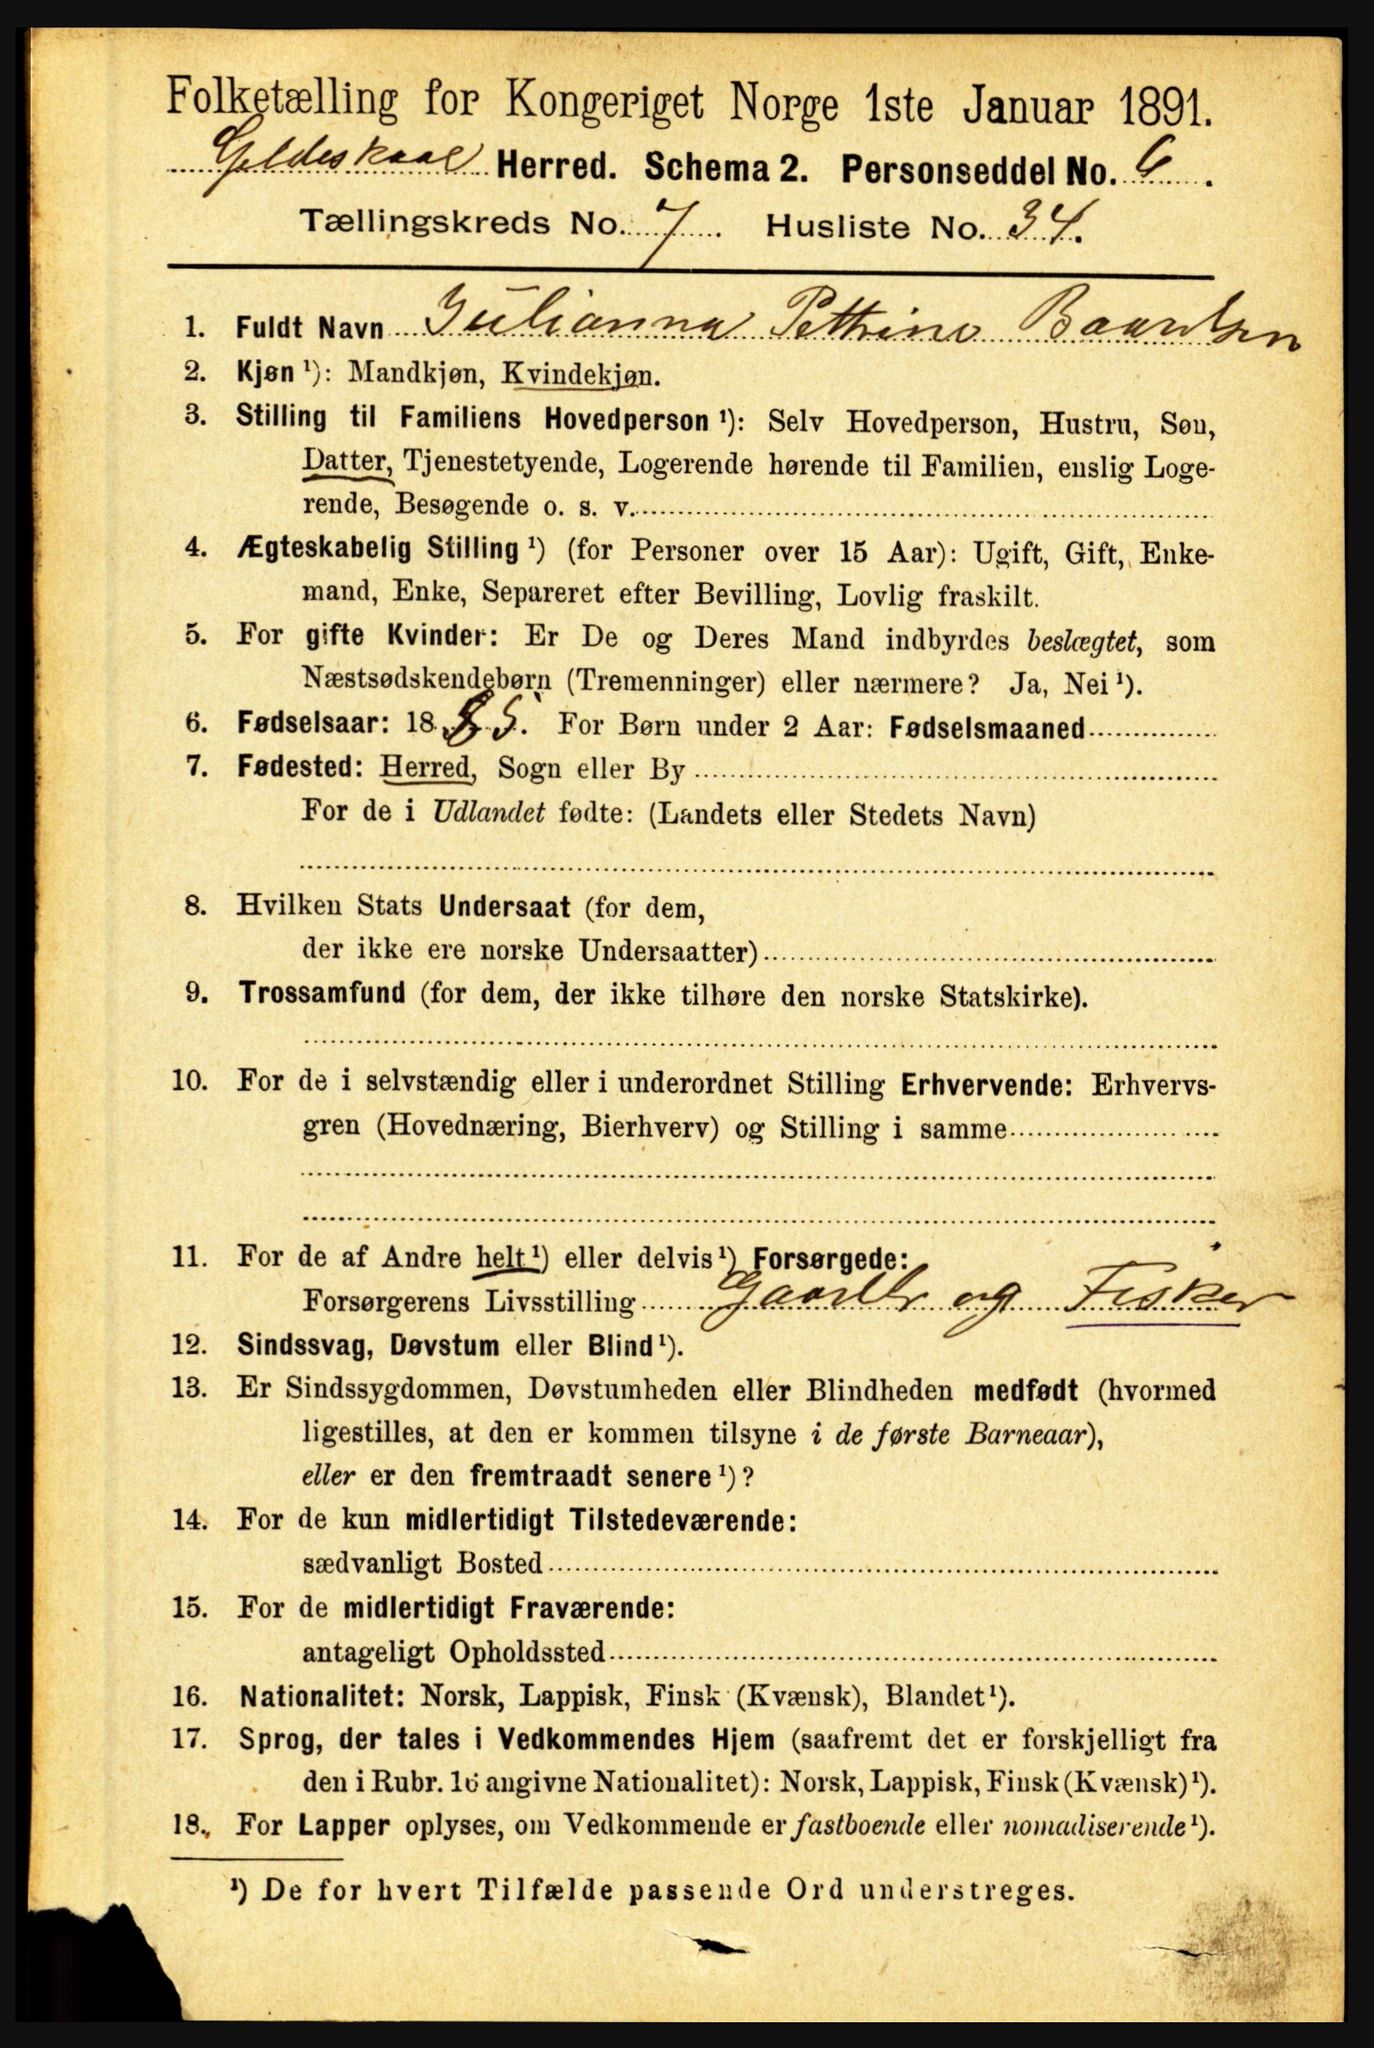 Folketælling for Kongeriget Norge 1ste Januar 1891.
Gildeskaal Herred. Schema 2. Personseddel No. 6.
Tællingskreds No. 7. Husliste No. 34.
1. Fuldt Navn Julianna Pettrine Baardsen
2. Kjøn ¹): Mandkjøn, Kvindekjøn.
3. Stilling til Familiens Hovedperson ¹): Selv Hovedperson, Hustru, Søn,
Datter, Tjenestetyende, Logerende hørende til Familien, enslig Loge-
rende, Besøgende o. s. v.
4. Ægteskabelig Stilling ¹) (for Personer over 15 Aar): Ugift, Gift, Enke-
mand, Enke, Separeret efter Bevilling, Lovlig fraskilt.
5. For gifte Kvinder: Er De og Deres Mand indbyrdes beslægtet, som
Næstsødskendebørn (Tremenninger) eller nærmere? Ja, Nei ¹).
6. Fødselsaar: 1885. For Børn under 2 Aar: Fødselsmaaned
7. Fødested: Herred, Sogn eller By
For de i Udlandet fødte: (Landets eller Stedets Navn)
8. Hvilken Stats Undersaat (for dem,
der ikke ere norske Undersaatter)
9. Trossamfund (for dem, der ikke tilhøre den norske Statskirke).
10. For de i selvstændig eller i underordnet Stilling Erhvervende: Erhvervs-
gren (Hovednæring, Bierhverv) og Stilling i samme
11. For de af Andre helt ¹) eller delvis ¹) Forsørgede:
Forsørgerens Livsstilling Gaardbr og Fisker
12. Sindssvag, Døvstum eller Blind ¹).
13. Er Sindssygdommen, Døvstumheden eller Blindheden medfødt (hvormed
ligestilles, at den er kommen tilsyne i de første Barneaar),
eller er den fremtraadt senere ¹)?
14. For de kun midlertidigt Tilstedeværende:
sædvanligt Bosted
15. For de midlertidigt Fraværende:
antageligt Opholdssted
16. Nationalitet: Norsk, Lappisk, Finsk (Kvænsk), Blandet ¹).
17. Sprog, der tales i Vedkommendes Hjem (saafremt det er forskjelligt fra
den i Rubr. 16 angivne Nationalitet): Norsk, Lappisk, Finsk (Kvænsk) ¹).
18. For Lapper oplyses, om Vedkommende er fastboende eller nomadiserende ¹).
¹) De for hvert Tilfælde passende Ord understreges.